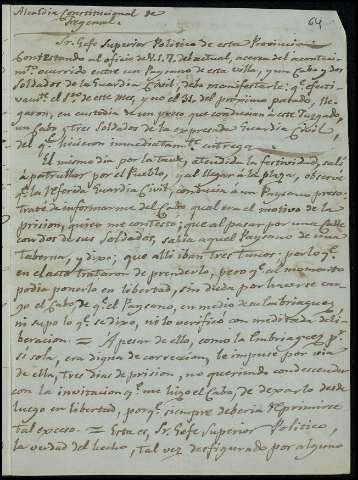 Alcaldia Constitucional de
Fregenal.
64
Sr. Gefe Superior Politico de esta Provincia
Contestando al oficio de V.S. 7 del actual, acerca del acontecim.to
ocurrido entre un Paysano de esta villa, y un Cabo, y dos
Soldados de la Guardia Civil; debo manifestarle: q.e efecti-
vam.te el 1º de este mes, y no el 31 del proximo pasado, lle-
garon, en custodia de un preso que conducian á este Juzgado,
un Cabo y tres Soldados de la expresada Guardia Civil,
del q.e hicieron inmediatam.te entrega.
El mismo dia por la tarde, atendida la festividad, salí
á patrullar por el Pueblo, y al llegar á la plaza, observé
q.e la referida Guardia Civil, conducia á un Paysano preso:
traté de informarme del Cabo qual era el motivo de la
prision, quien me contestó; que al pasar por una Calle
con dos de sus Soldados, salia aquel Paysano de una
taberna, y dixo; que alli iban tres tunos; por lo q.e
en el acto trataron de prenderlo, pero q.e al momento
podia ponerlo en libertad, sin duda por hacerse car-
go el Cabo, de q.e el Paysano, en medio de su embriaguez,
ni supo lo q.e se dixo, ni lo verificó con meditada deli-
beracion. = A pesar de ello, como la Embriaguez p.r
si sola, era digna de correccion, le impuse por via
de ella, tres dias de prision, no queriendo condescender
con la invitacion q.e me hizo el Cabo, de dexarlo desde
luego en libertad, porq.e siempre deberia reprimirse
tal exceso. = Esta es, Sr. Gefe Superior Politico,
la verdad del hecho, tal vez desfigurado por alguno